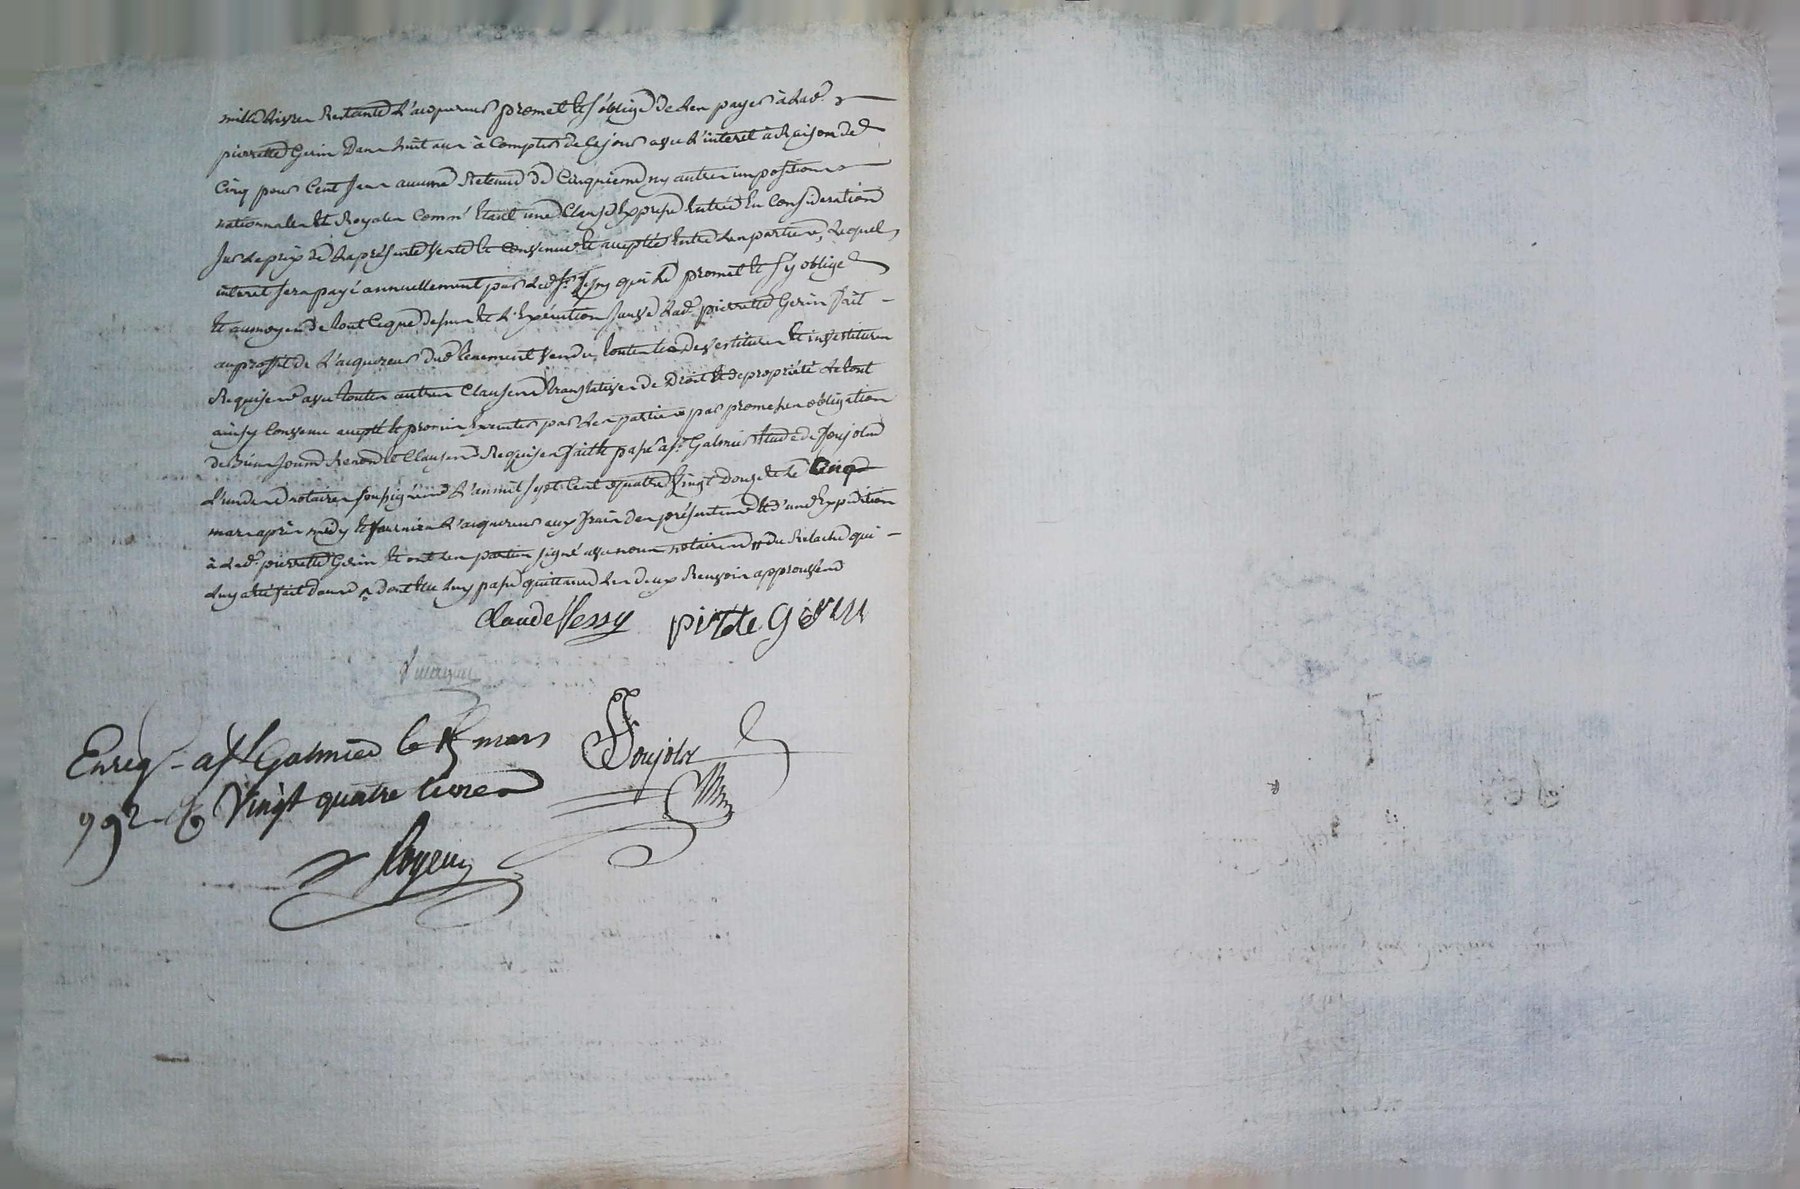 mille livres restante l'acquereur promet et s'oblige de les payer à lad.
pierrette Gerin dans huit ans à compter de ce jour avec l'interet à raison de
cinq pour cent sans aucune retenue de cinquieme ny autres impositions
nationalles et royales comm' etant une clause expresse entrée en consideration
sur le prix de la présente vente et convenue et acceptée entre les parties, lequel
interet sera payé annuellement par led. sr. Vessy qui le promet et s'y oblige
et au moyen de tout ce que dessus et l'exécution sauve lad. pierrette Gerin fait
au proffit de l'acquereur dud. tenement vendu, toutes les devestitures et investitures
requises avec toutes autres clauses translatives de droit et de propriété le tout
ainsy convenu accepté et promis executer par les parties par promesses obligation
de biens soumd. renond. et clauses requises fait et passé a st. Galmier etude de Poujold
l'un des notaires soussignés l'an mil sept cent quatre vingt douze et le cinq
mars après midy et fournira l'acquereur aux frais des présentes et d'une expedition
à lad. pierrette Gerin et ont les parties signé avec nous notaires du relaché qui
luy a été fait dont il luy passe quittance les deux renvoir approuvés
Claude Vessy pirete Gerin
Enreg. a st Galmier le 15 mars
792 R vingt quatre livres
Poujold